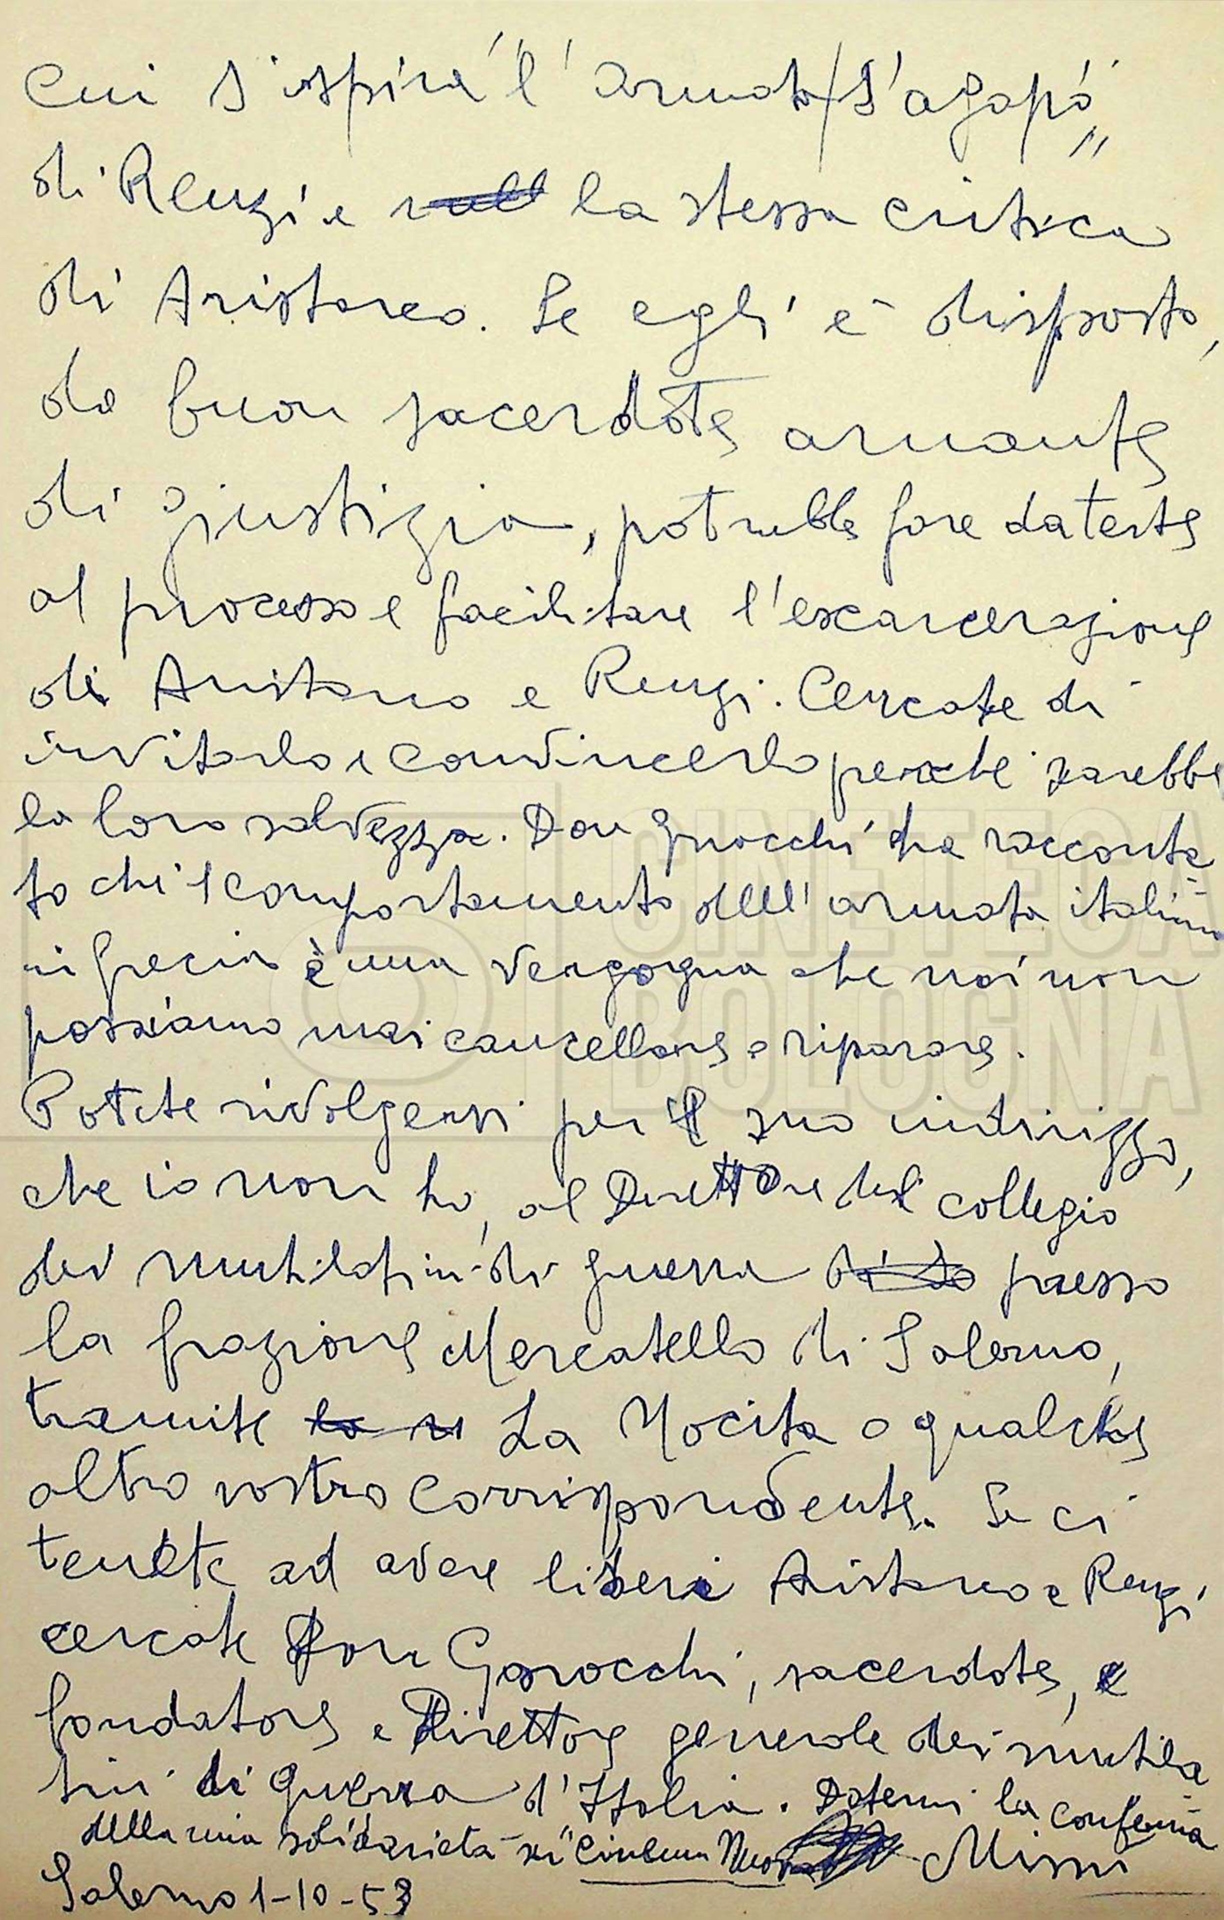 cui s'ispira "l'armata s'agapò"
di Renzi e la stessa critica
di Aristarco. Se egli è disposto,
da buon sacerdote amante
di giustizia, potrebbe fare da teste
al processo e facilitare l'escarcerazione
di Aristarco e Renzi. Cercate di
invitarlo e convincerlo perché sarebbe
la loro salvezza. Don Gnocchi ha racconta-
to che il comportamento dell'armata italiana
in Grecia è una vergogna che noi non
possiamo mai cancellare e riparare.
Potete rivolgervi per il suo indirizzo,
che io non ho, al Direttore del collegio
dei mutilatini di guerra presso
la frazione Mercatello di Salerno,
tramite La Nocita o qualche
altro vostro corrispondente. Se ci
tenete ad avere liberi Aristarco e Renzi
cercate Don Gnocchi, sacerdote, e
fondatore e Direttore generale dei mutila
tini di guerra d'Italia. Datemi la conferma
della mia solidarietà su "Cinema Nuovo
Salerno 1-10-53
CINETECA
BOLOGNA